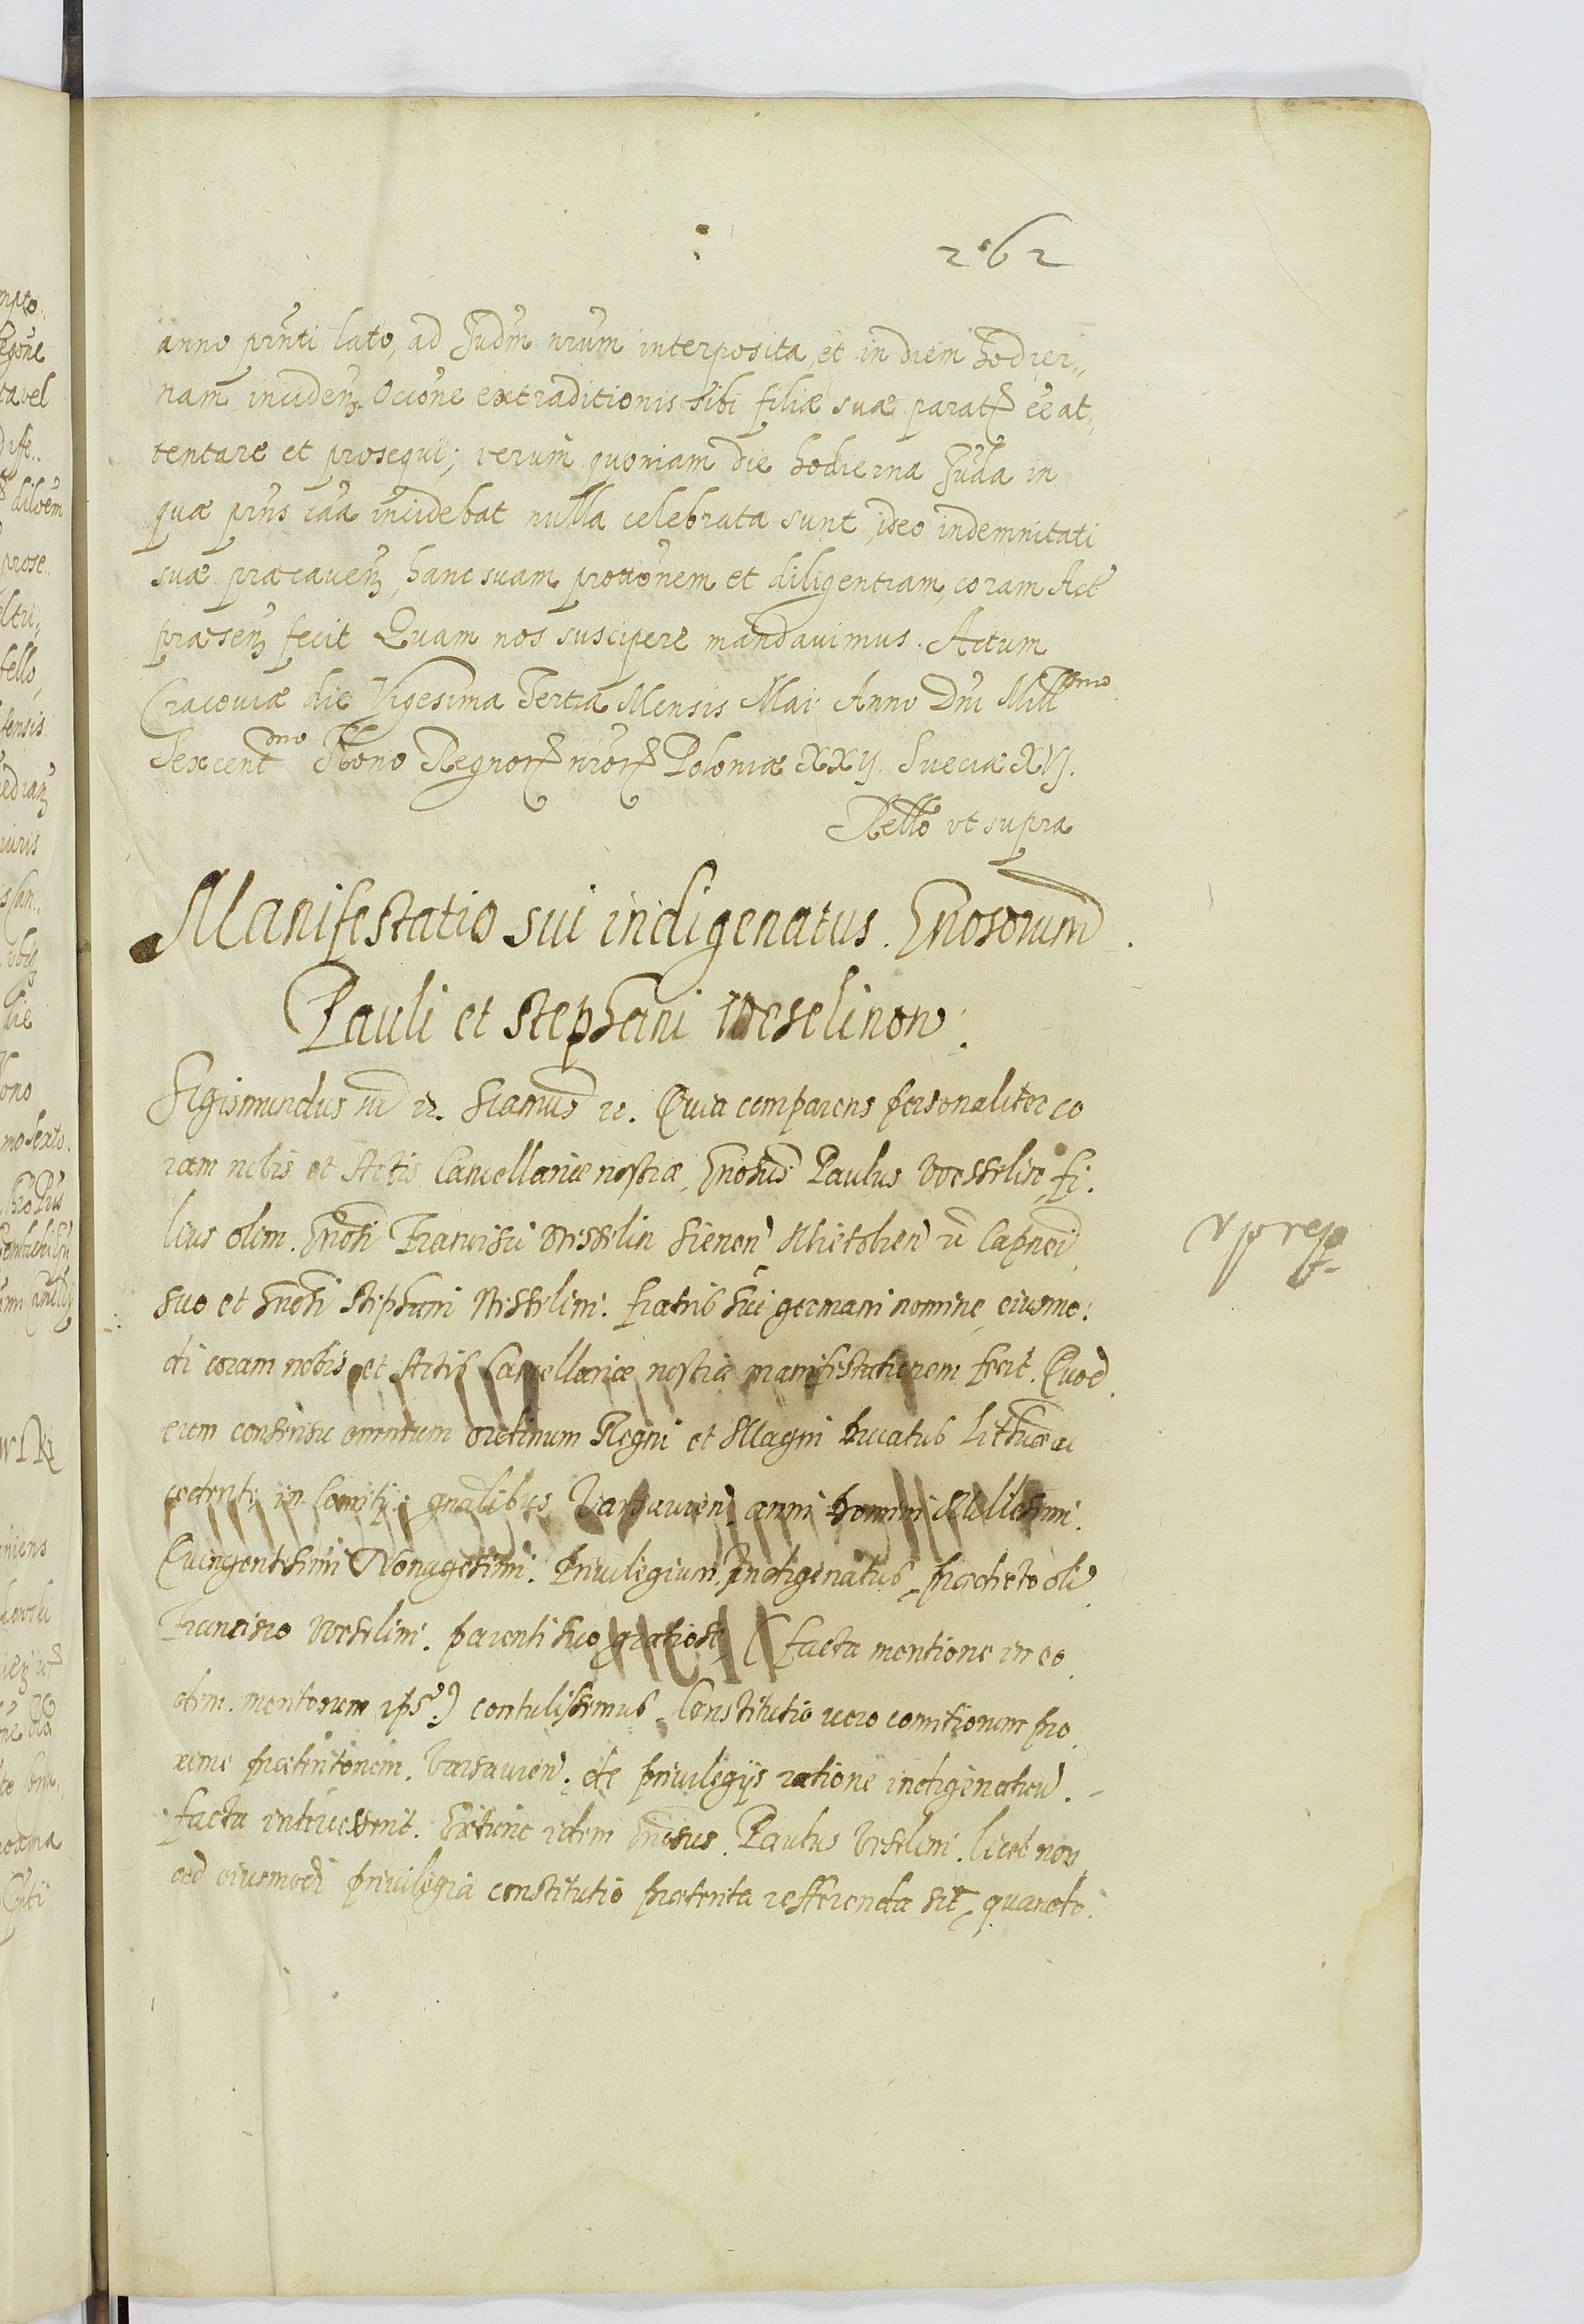 262
anno prnti lato, ad Judm nrum interposita et in diem hodier„
nam inciden. Occione extraditionis sibi filiæ suæ parat ee at„
tentare et prosequi; verum quoniam die hodierna Juda in
quæ prns caa incidebat nulla celebrata sunt, ideo indemnitati
suæ præcauen, hanc suam prottonem et diligentiam, coram Act
præsen fecit Quam nos suscipere mandauimus. Actum
Cracouiæ die Vigesima Tertia Mensis Mai Anno Dni Mill^imo
Sexcent^mo Nono Regnor nror Poloniæ XXIJ. Sueciæ XVJ.
Rello vt supra
Manifestatio sui indigenatus. Gnosorum
Pauli et Stephani Weselinow.
Sigismundus III rc. Significamus rc. Quia comparens personaliter co
ram nobis et Actis Cancellariæ nostræ, Gnosus Paulus Wesselin, fi.
lius olim. Gnosi Francisci Wesselin Sienen Mietolien rc Capnei
suo et Gnosi Stephani Wesselini. fratris sui germani nomine, eiusmo.
di coram nobis et Actis Cancellariæ nostræ manifestationem fecit. Quod
cum consensu omnium ordinum Regni et Magni Ducatus Lithuæ ac
cedente in Comitijs gnalibus Varsauien. anni Domini Millesimi.
Quingentesimi Nonagesimi. Priuilegium Indigenatus, prædicto oli
Francisco Weselini. parenti suo gratiose, (facta mentione in eo
dem. mentorum ips.) contulissemus. Constitutio uero comitiorum pro
xime præteritorum. Varsauien. de priuilegijs ratione indigenatuu.
facta interuenerit. Extunc idem Gnosus. Paulus Weselini. licet non
ad eiusmodi priuilegia constitutio præterita refferenda sit, quando.